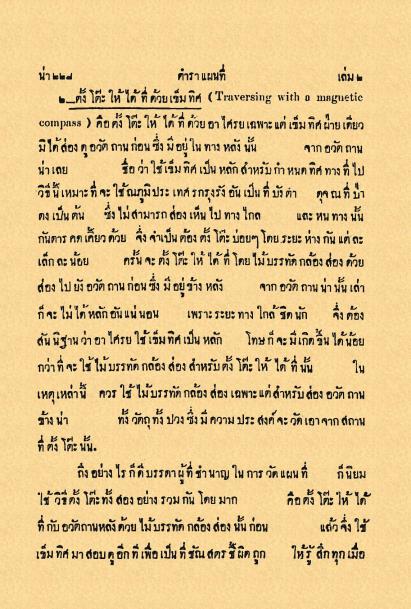 น่า ๒๒๘ ตำราแผนที่ เล่ม ๒
๒_ตั้ง โต๊ะ ให้ ได้ ที่ ด้วย เข็ม ทิศ (Traversing with a magnetic
compass) คือ ตั้ง โต๊ะ ให้ ได้ ที่ ด้วย อา ไศรย เฉพาะ แต่ เข็ม ทิศ ฝ่าย เดียว
มิ ได้ ส่อง ดู อวัตถาน ก่อน ซึ่ง มี อยู่ ใน ทาง หลัง นั้น จาก อวัตถาน
น่า เลย ชื่อ ว่า ใช้ เข็ม ทิศ เป็น หลัก สำหรับ กำ หนด ทิศ ทาง ที่ ไป
วิธี นี้ เหมาะ ที่ จะ ใช้ ณภูมิ ประ เทศ รกรุงรัง อัน เป็น ที่ บัง ตา ดุจ ณ ที่ ป่า
ดง เป็น ต้น ซึ่ง ไม่ สามารถ ส่อง เห็น ไป ทาง ไกล และ หน ทาง นั้น
กันดาร คด เคี้ยว ด้วย จึ่ง จำ เป็น ต้อง ตั้ง โต๊ะ บ่อยๆ โดย ระยะ ห่าง กัน แต่ ละ
เล็ก ละ น้อย ครั้น จะ ตั้ง โต๊ะ ให้ ได้ ที่ โดย ไม้ บรรทัด กล้อง ส่อง ด้วย
ส่อง ไป ยัง อวัตถาน ก่อน ซึ่ง มี อยู่ ข้าง หลัง จาก อวัตถาน น่า นั้น เล่า
ก็ จะ ไม่ ได้ หลัก อัน แน่ นอน เพราะ ระยะ ทาง ใกล้ ชิด นัก จึ่ง ต้อง
สันนิฐาน ว่า อา ไศรย ใช้ เข็ม ทิศ เป็น หลัก โทษ ก็ จะ มี เกิด ขึ้น ได้ น้อย
กว่า ที่ จะ ใช้ ไม้ บรรทัด กล้อง ส่อง สำหรับ ตั้ง โต๊ะ ให้ ได้ ที่ นั้น ใน
เหตุ เหล่า นี้ ควร ใช้ ไม้ บรรทัด กล้อง ส่อง เฉพาะ แต่ สำหรับ ส่อง อวัตถาน
ข้าง น่า ทั้ง วัตถุ ทั้ง ปวง ซึ่ง มี ความ ประ สงค์ จะ วัด เอา จาก สถาน
ที่ ตั้ง โต๊ะ นั้น.
ถึง อย่าง ไร ก็ ดี บรรดา ผู้ ที่ ชำนาญ ใน การ วัด แผน ที่ ก็ นิยม
ใช้ วิธี ตั้ง โต๊ะ ทั้ง สอง อย่าง รวม กัน โดย มาก คือ ตั้ง โต๊ะ ให้ ได้
ที่ กับ อวัตถาน หลัง ด้วย ไม้ บรรทัด กล้อง ส่อง นั้น ก่อน แล้ว จึ่ง ใช้
เข็ม ทิศ มา สอบ ดู อีก ที เพื่อ เป็น ที่ ชัณสูตร ชี้ ผิด ถูก ให้ รู้ สึก ทุก เมื่อ